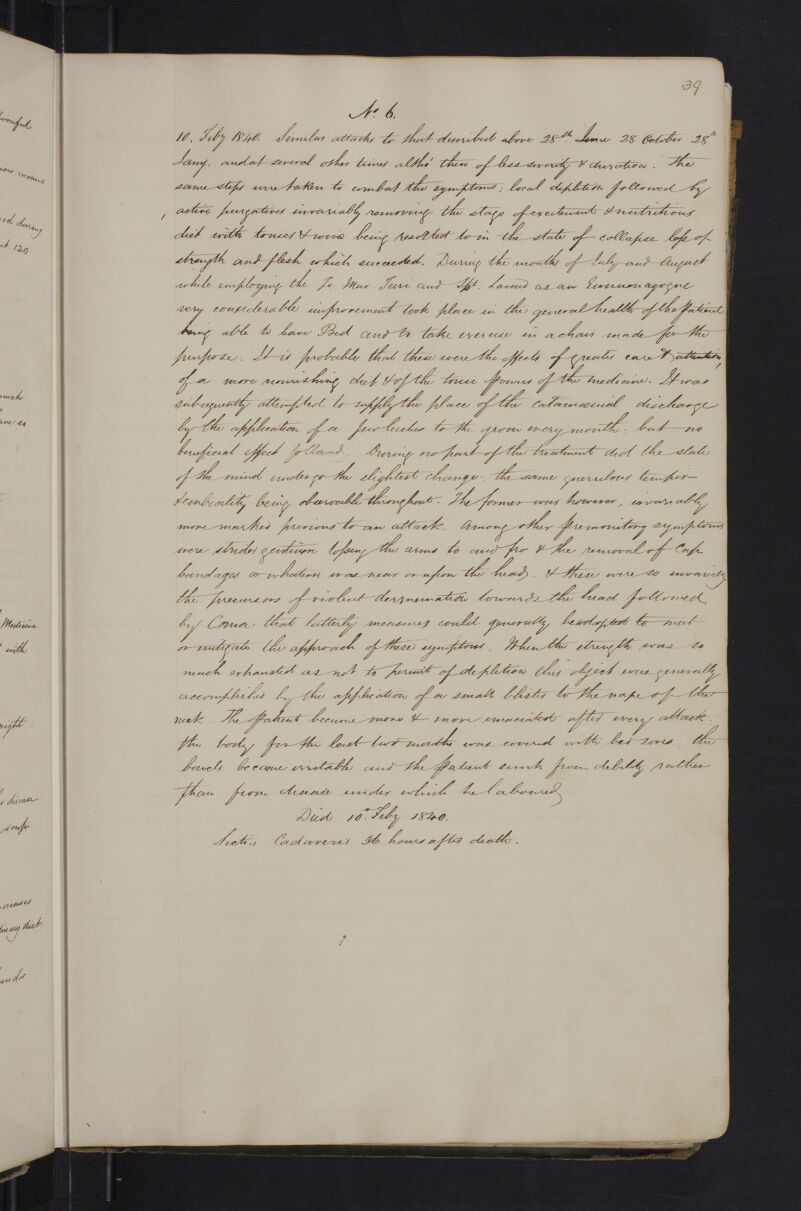 39.
No. 6.
10. Feby 1840. Similar attacks to that described above 28th June 28 October 28th
Jany. and at several other times altho' these of less severity & duration. The
same steps were taken to combat the symptoms: local depletion followed by
active purgatives invariably removing the stage of excitement & nutritious
diet with tonics & wine being resorted to in the state of collapse loss of
strength and flesh which succeeded. During the months of July and August
while employing the Tr. Mur Ferri and Spt. Lavend as an Emmenagogue
very considerable improvement took place in the general health of the Patient
being able to leave Bed and to take exercise in a chair made for the
purpose. It is probable that these were the effects of greater care & attention,
of a more nourishing diet & of the tonic powers of the medicine. It was
subsequently attempted to supply the place of the catamaenial discharge
by the application of a few leeches to the groin every month. but no
beneficial effect followed. During no part of the treatment did the state
of the mind undergo the slightest change. the same querulous temper
& imbecility being observable throughout. The former was however, invariably
more marked previous to an attack. Among other premonitory symptoms
were stridor dentium tossing the arms to and fro & the removal of Cap
bandages or whatever was near or upon the head. & these were so invariably
the precursors of violent determination towards the head followed
by Coma that latterly measures could generally be adopted to meet
or mitigate the approach of these symptoms. When the strength was so
much exhausted as not to permit of depletion this object was generally
accomplished by the application of a small blister to the nape of the
neck. The patient became more & more emaciated after every attack.
the body for the last two months was covered with bed sores. the
bowels became irritable and the patient sunk from debility rather
than from disease under which he laboured
Died 10th Feby 1840.
Sectio Cadaveris 36 hours after death.
ed during
120
much
Medicine
with
night
disease
ary diet.